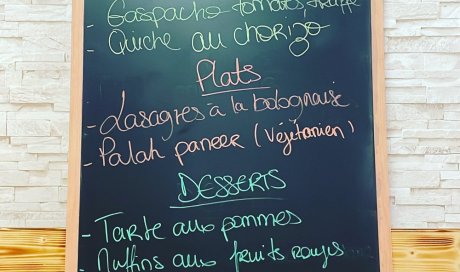 - Gaspacho tomates, truffe
- Quiche au chorizo
Plats
- Lasagnes à la bolognaise
- Palak paneer (Végétarien)
DESSERTS
- Tarte aux pommes
- Muffins aux fruits rouges